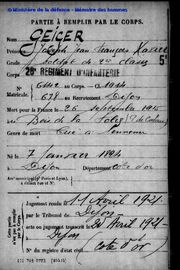 © Ministère de la défense - Mémoire des hommes
PARTIE À REMPLIR PAR LE CORPS.
Nom GEIGER
Prénoms Joseph Jean François Xavier
Grade Soldat de 2e classe
Corps 26e RÉGIMENT D'INFANTERIE
N° au Corps. — Cl. 1914
Matricule. 678 au Recrutement Dijon
Mort pour la France le 26 septembre 1915
à Bois de la
Genre de mort Tué à l'ennemi
Né le 7 Janvier 1894
à Dijon Département Côte d'or
Arr' municipal (p' Paris et Lyon),
Jugement rendu le 11 Avril 1921
par le Tribunal de Dijon
acte ou jugement transcrit le 20 Avril 1921
à Dijon (Côte d'or)
N° du registre d'état civil